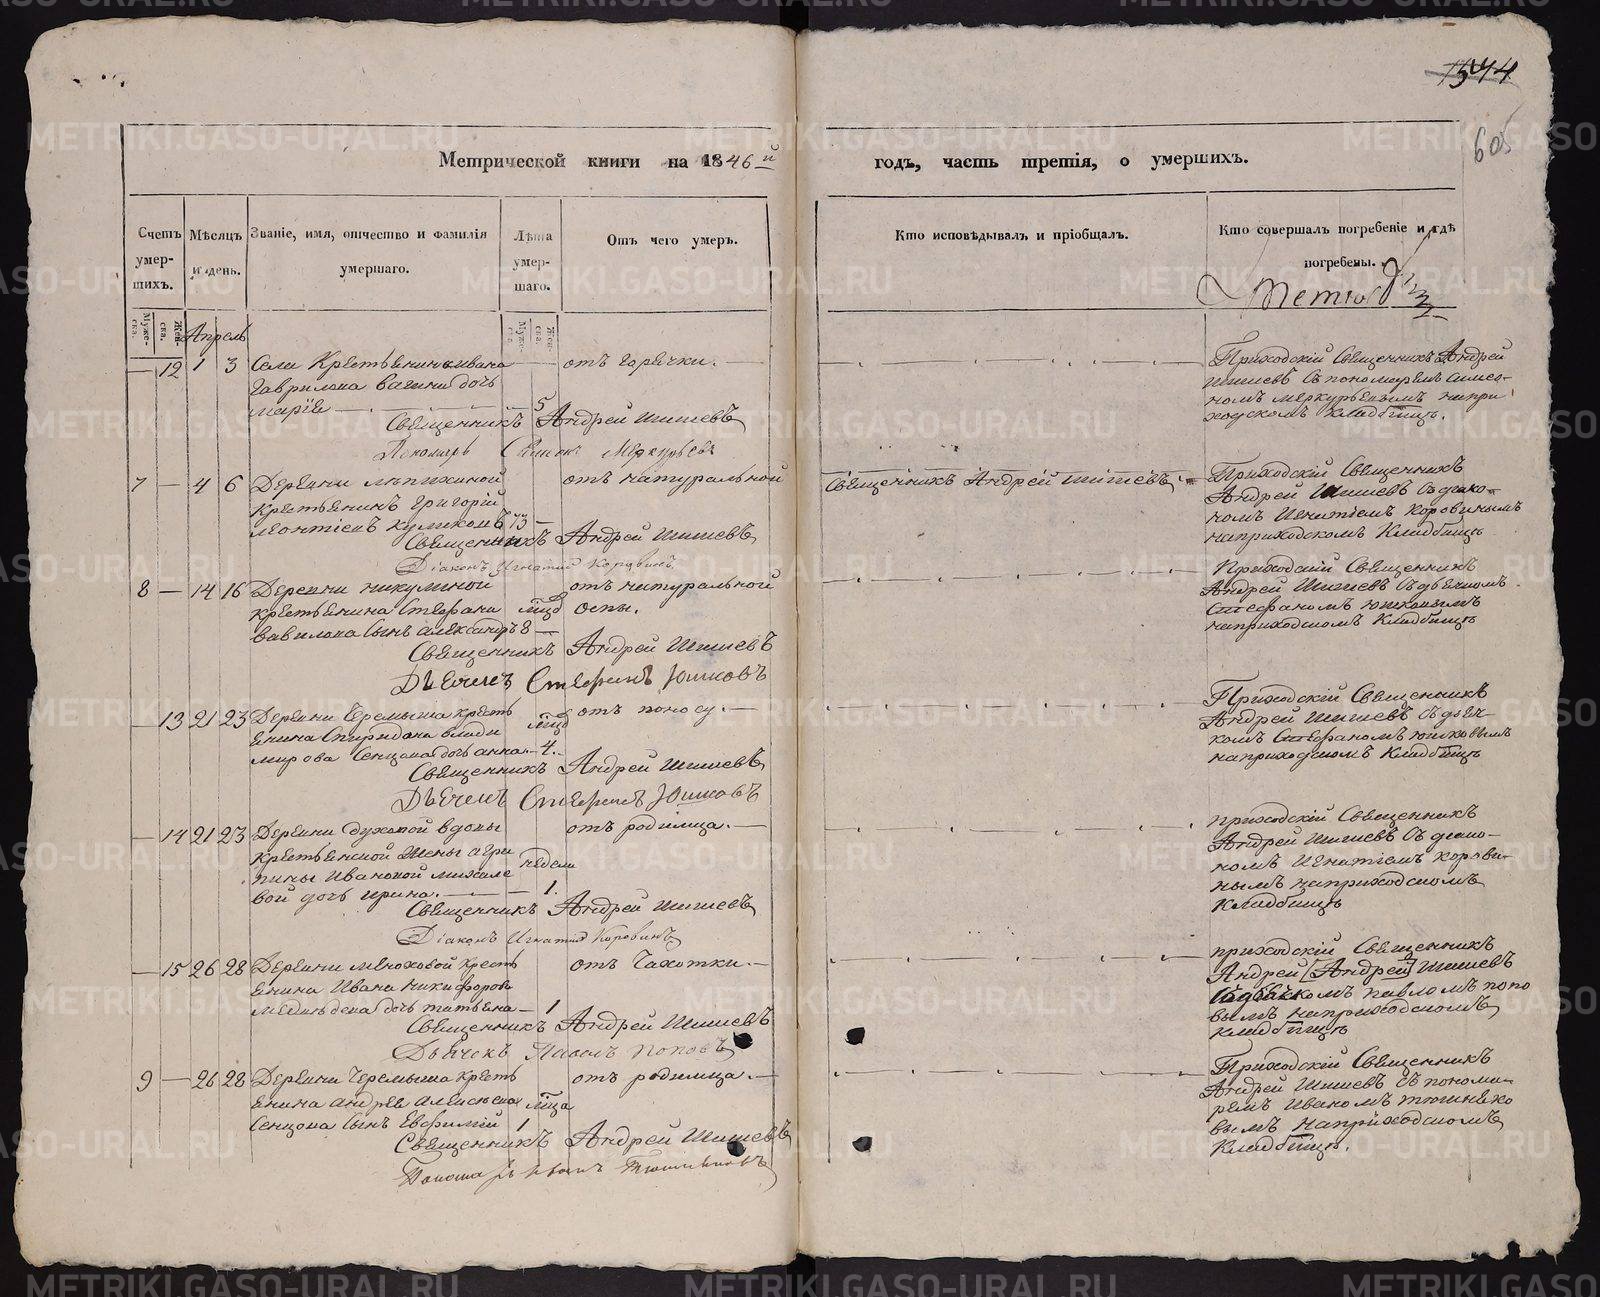 1544
605
Метрической книги на 1846й годъ, часть третія, о умершихъ.
Счетъ умерших.
Мужеска. Женска.
Мѣсяцъ и день.
Званіе, имя, отчество и фамилія умершаго.
Лѣта умершаго.
Мужеска. Женска.
Отъ чего умеръ.
Кто исповѣдывалъ и пріобщалъ.
Кто совершалъ погребеніе и гдѣ погребены.
Апрель
— 12 1 3 Села Крестьянина Ивана — отъ горячки.
Гаврилова Вагина дочь
Марія — 5
Священникъ Андрей Шишевъ
Пономарь Симеонъ Меркурьевъ
Приходскій Священникъ Андрей
Шишевъ съ пономаремъ Симео-
номъ Меркурьевымъ на при
ходскомъ кладбищѣ.
7 — 4 6 Деревни
крестьянинъ Григорій
Леонтіевъ Куликовъ 73 —
отъ натуральной
Священникъ Андрей Шишевъ
Діаконъ Игнатій Коровинъ
Священникъ Андрей Шишевъ.
Приходскій Священникъ
Андрей Шишевъ съ діако-
номъ Игнатіемъ Коровинымъ
на приходскомъ кладбищѣ
8 — 14 16 Деревни Никулиной
крестьянина Стефана
Вавилова сынъ Александръ 8 —
отъ натуральной
оспы.
Священникъ Андрей Шишевъ
Дьячекъ Стефанъ Юшковъ
Приходскій Священникъ
Андрей Шишевъ съ дьячкомъ
Стефаномъ Юшковымъ
на приходскомъ кладбищѣ
— 13 21 23 Деревни Черемыша кресть
янина Спиридона Влади
мирова Сенцова дочь Анна — 4.
отъ поносу. —
Священникъ Андрей Шишевъ
Дьячекъ Стефанъ Юшковъ
Приходскій Священникъ
Андрей Шишевъ съ дьяч-
комъ Стефаномъ Юшковымъ
на приходскомъ кладбищѣ
— 14 21 23 Деревни Духовой вдовы
крестьянской жены Агри
пины Ивановой Михале
вой дочь Ирина. — недели 1.
отъ родимца. —
Священникъ Андрей Шишевъ
Діаконъ Игнатій Коровинъ
приходскій Священникъ
Андрей Шишевъ съ діако-
номъ Игнатіемъ Корови-
нымъ на приходскомъ
кладбищѣ
— 15 26 28 Деревни Мѣлюховой кресть
янина Ивана Никифорова
Медвѣдева дочь Татьяна — 1
отъ Чахотки. —
Священникъ Андрей Шишевъ
Дьячекъ Павелъ Поповъ
приходскій Священникъ
Андрей [Андрей] Шишевъ
съ дьячкомъ Павломъ Попо
вымъ на приходскомъ
кладбищѣ
9 — 26 28 Деревни Черемыша кресть
янина Андрея Алексѣева
Сенцова сынъ Евфимій 1
отъ родимца. —
Священникъ Андрей Шишевъ
Пономарь Иванъ Тюшняковъ
Приходскій Священникъ
Андрей Шишевъ съ понома-
ремъ Иваномъ Тюшняко
вымъ на приходскомъ
кладбищѣ.
METRIKI.GASO-URAL.RU